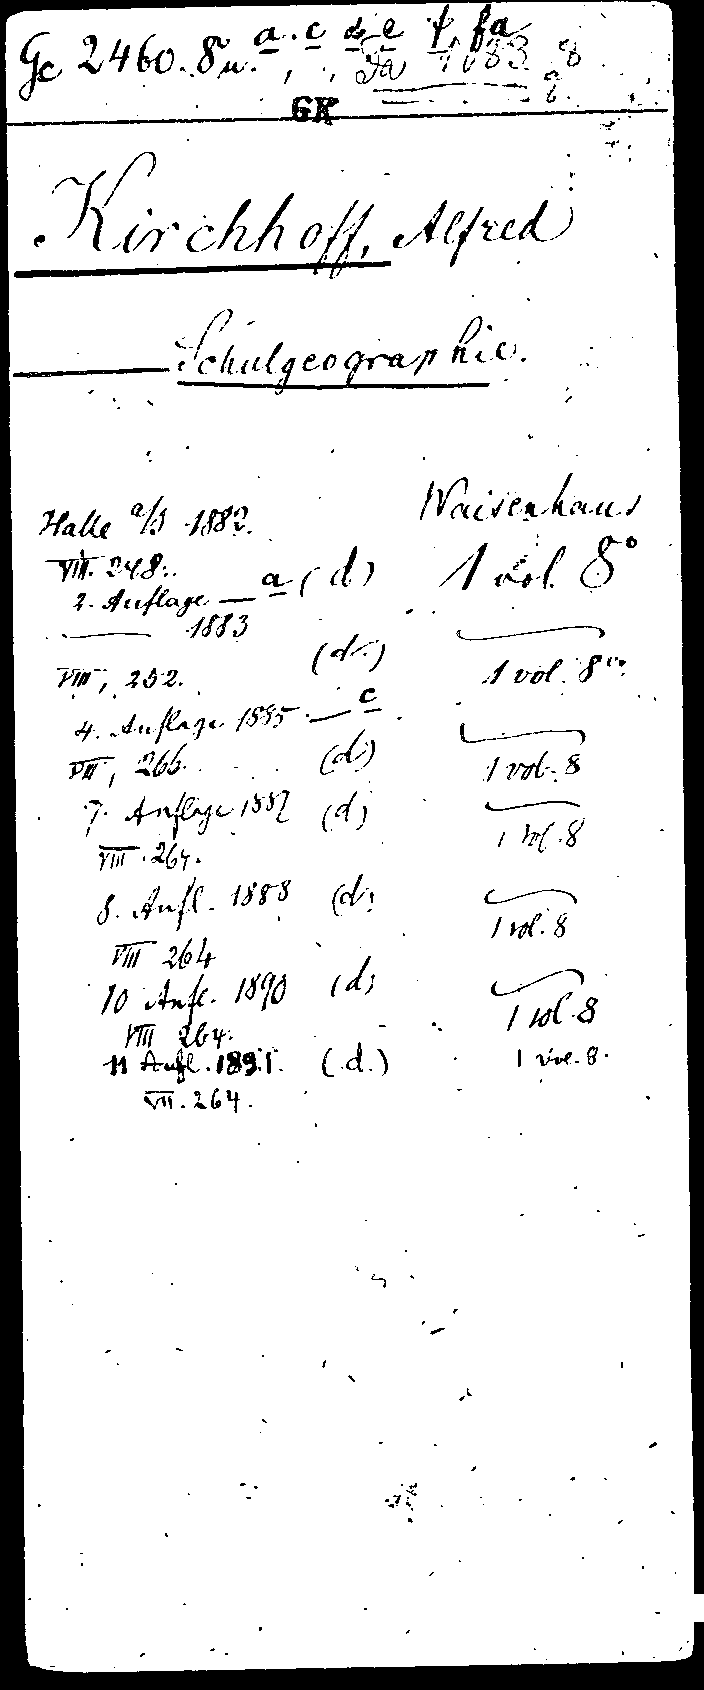 Gc 2460. 8 u. a. c d e f fa
8
GK
Kirchhoff, Alfred
Schulgeographie.
Halle a/S 1882. Waisenhaus
VIII. 248. (d) 1 vol. 8°
2. Auflage — a
1883
VIII, 252. (d.) 1 vol. 8vo
4. Auflage 1885 — c
VII, 266. (d) 1 vol. 8
7. Auflage 1887 (d)
VIII. 264. 1 vol. 8
8. Aufl. 1888 (d)
VIII 264 1 vol. 8
10 Aufl. 1890 (d)
VIII 264. 1 vol. 8
11 Aufl. 1891. (d.) 1 vol. 8.
VII. 264.